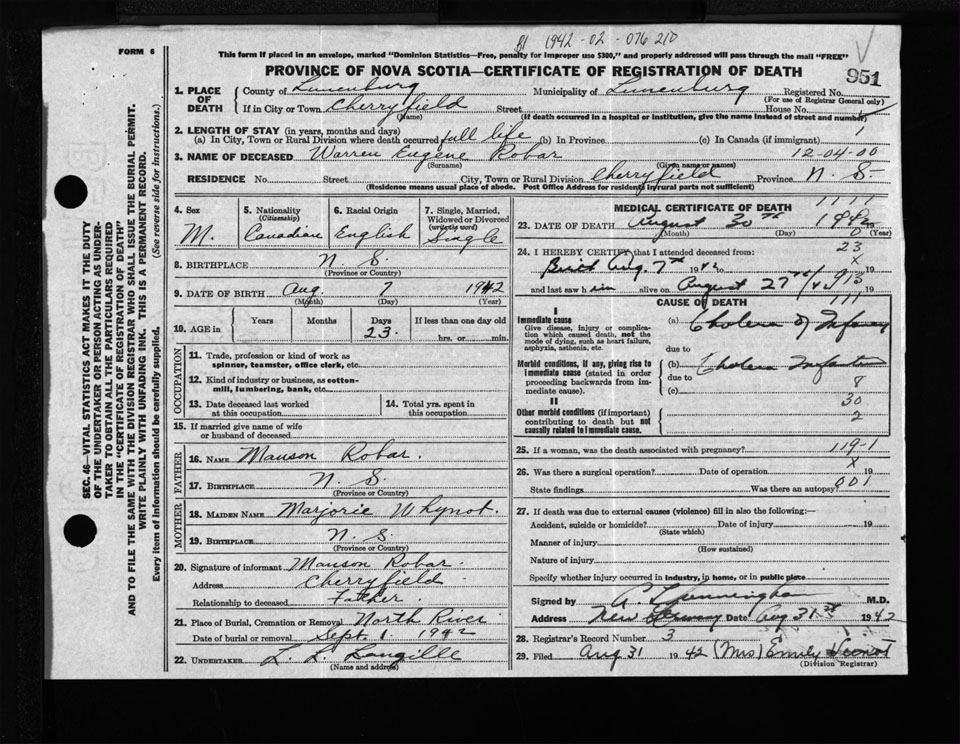 B1 1942-02-076210
FORM 6
This form if placed in an envelope, marked "Dominion Statistics—Free, penalty for improper use $300," and properly addressed will pass through the mail "FREE"
PROVINCE OF NOVA SCOTIA—CERTIFICATE OF REGISTRATION OF DEATH
951
SEC. 46—VITAL STATISTICS ACT MAKES IT THE DUTY
OF THE UNDERTAKER OR PERSON ACTING AS UNDER-
TAKER TO OBTAIN ALL THE PARTICULARS REQUIRED
IN THE "CERTIFICATE OF REGISTRATION OF DEATH"
AND TO FILE THE SAME WITH THE DIVISION REGISTRAR WHO SHALL ISSUE THE BURIAL PERMIT.
WRITE PLAINLY WITH UNFADING INK. THIS IS A PERMANENT RECORD.
Every item of information should be carefully supplied. (See reverse side for instructions.)
1. PLACE OF DEATH
County of Lunenburg Municipality of Lunenburg Registered No.
(For use of Registrar General only)
If in City or Town Cherryfield Street House No.
(Name) (If death occurred in a hospital or institution, give the name instead of street and number)
2. LENGTH OF STAY (in years, months and days)
(a) In City, Town or Rural Division where death occurred full life (b) In Province (c) In Canada (if immigrant) 1
3. NAME OF DECEASED Warren Eugene Robar 12-04-00
(Surname) (Given name or names)
RESIDENCE No. Street City, Town or Rural Division Cherryfield Province N. S.
(Residence means usual place of abode. Post Office Address for residents in rural parts not sufficient)
4. Sex
M.
5. Nationality
(Citizenship)
Canadian
6. Racial Origin
English
7. Single, Married,
Widowed or Divorced
(write the word)
Single
8. BIRTHPLACE N. S.
(Province or Country)
9. DATE OF BIRTH Aug. 7 1942
(Month) (Day) (Year)
10. AGE in
Years Months Days If less than one day old
23. hrs. or min.
OCCUPATION
11. Trade, profession or kind of work as
spinner, teamster, office clerk, etc.
12. Kind of industry or business, as cotton-
mill, lumbering, bank, etc.
13. Date deceased last worked
at this occupation
14. Total yrs. spent in
this occupation
15. If married give name of wife
or husband of deceased
FATHER
16. NAME Manson Robar.
17. BIRTHPLACE N. S.
(Province or Country)
MOTHER
18. MAIDEN NAME Marjorie Whynot.
19. BIRTHPLACE N. S.
(Province or Country)
20. Signature of informant Manson Robar.
Address Cherryfield
Relationship to deceased Father.
21. Place of Burial, Cremation or Removal North River
Date of burial or removal Sept. 1 1942
22. UNDERTAKER L. L. Langille
(Name and address)
MEDICAL CERTIFICATE OF DEATH
1111
23. DATE OF DEATH August 30th 1942
(Month) (Day) (Year)
0
24. I HEREBY CERTIFY that I attended deceased from: 23
Birth Aug. 7th 1942 to X 19
and last saw him alive on August 27th/42 913 19
111
CAUSE OF DEATH
I
Immediate cause
Give disease, injury or complica-
tion which caused death, not the
mode of dying, such as heart failure,
asphyxia, asthenia, etc.
(a) Cholera of Infancy
due to
Morbid conditions, if any, giving rise to
immediate cause (stated in order
proceeding backwards from im-
mediate cause).
(b) Cholera Infantum
due to
(c) 8
30
II
Other morbid conditions (if important)
contributing to death but not
causally related to immediate cause.
2
25. If a woman, was the death associated with pregnancy? 119-1
26. Was there a surgical operation? Date of operation X 19
State findings Was there an autopsy? 001
27. If death was due to external causes (violence) fill in also the following:—
Accident, suicide or homicide? Date of injury 19
(State which)
Manner of injury
(How sustained)
Nature of injury
Specify whether injury occurred in industry, in home, or in public place
Signed by Cunningham M.D.
Address New Germany Date Aug 31st 1942
28. Registrar's Record Number 3
29. Filed Aug 31 1942 (Mrs) Emily
(Division Registrar)